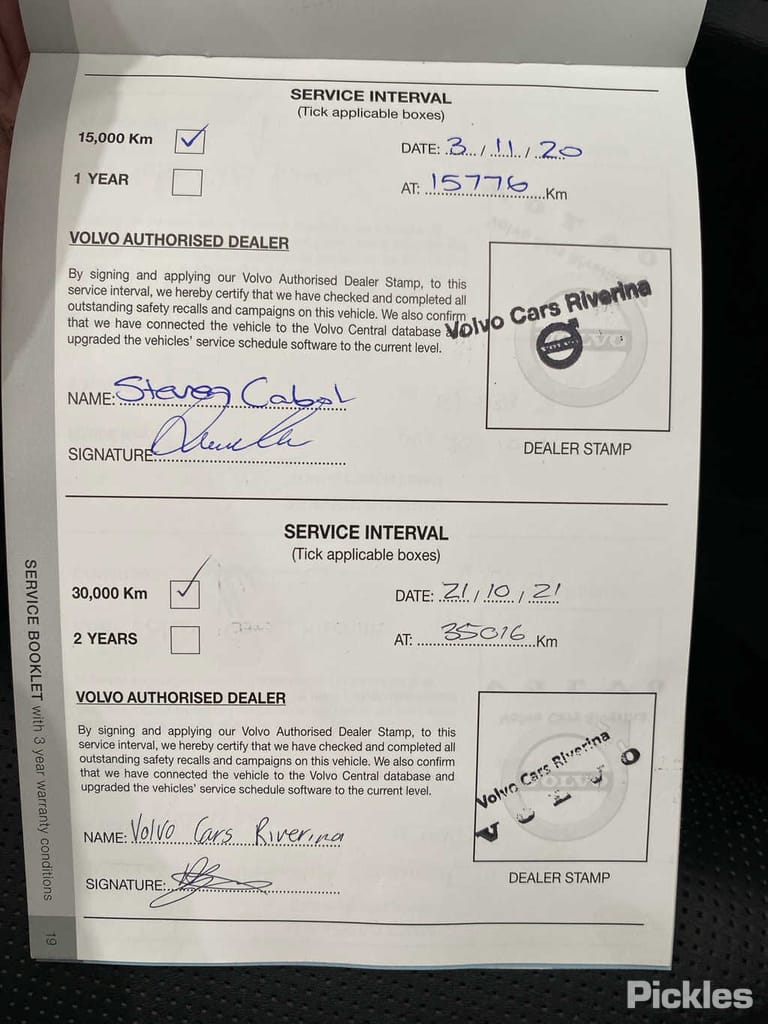 SERVICE INTERVAL
(Tick applicable boxes)
15,000 Km
DATE: 3 / 11 / 20
1 YEAR
AT: 15776 Km
VOLVO AUTHORISED DEALER
By signing and applying our Volvo Authorised Dealer Stamp, to this
service interval, we hereby certify that we have checked and completed all
outstanding safety recalls and campaigns on this vehicle. We also confirm
that we have connected the vehicle to the Volvo Central database
upgraded the vehicles' service schedule software to the current level.
Volvo Cars Riverina
VOLVO
NAME: Steven
SIGNATURE
DEALER STAMP
SERVICE INTERVAL
(Tick applicable boxes)
30,000 Km
DATE: 21 / 10 / 21
2 YEARS
AT: 35016 Km
VOLVO AUTHORISED DEALER
By signing and applying our Volvo Authorised Dealer Stamp, to this
service interval, we hereby certify that we have checked and completed all
outstanding safety recalls and campaigns on this vehicle. We also confirm
that we have connected the vehicle to the Volvo Central database and
upgraded the vehicles' service schedule software to the current level.
Volvo Cars Riverina
VOLVO
NAME: Volvo Cars Riverina
SIGNATURE:
DEALER STAMP
SERVICE BOOKLET with 3 year warranty conditions
19
Pickles